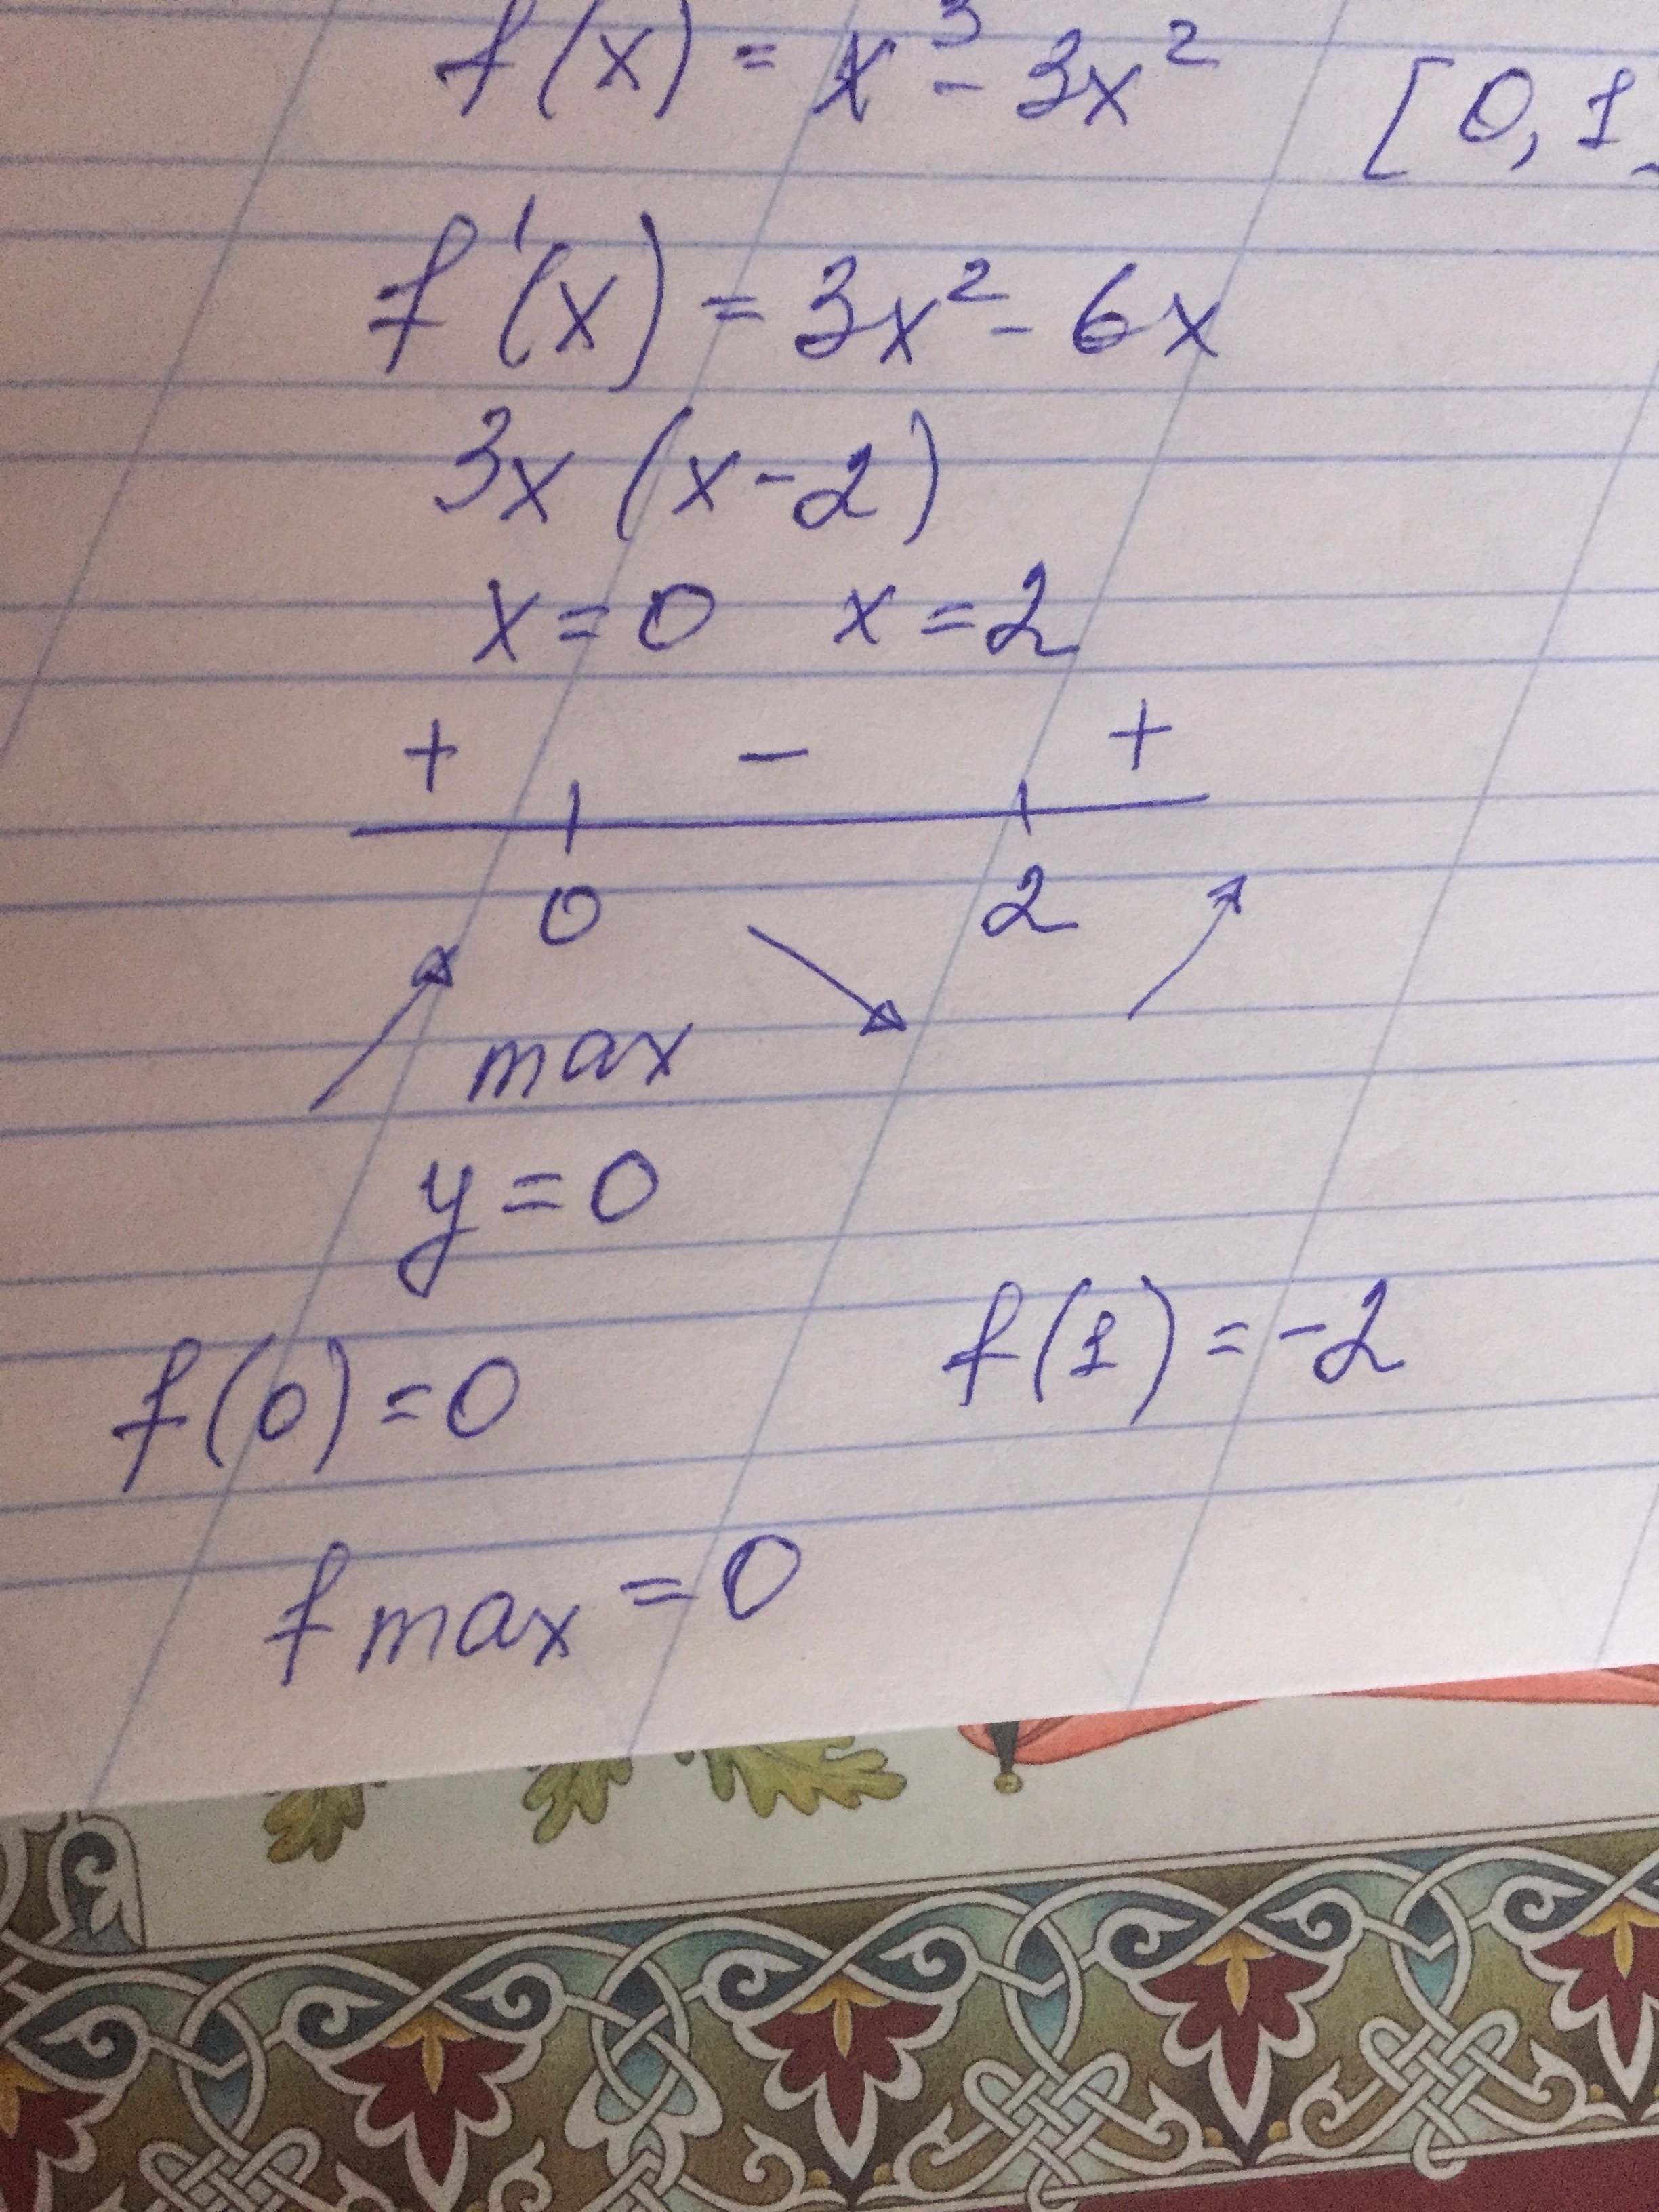 f(x) = x³ - 3x² [0,1
f'(x) = 3x² - 6x
3x (x-2)
x=0 x=2
+ - +
0 2
max
y=0
f(0)=0 f(1)=-2
f max = 0